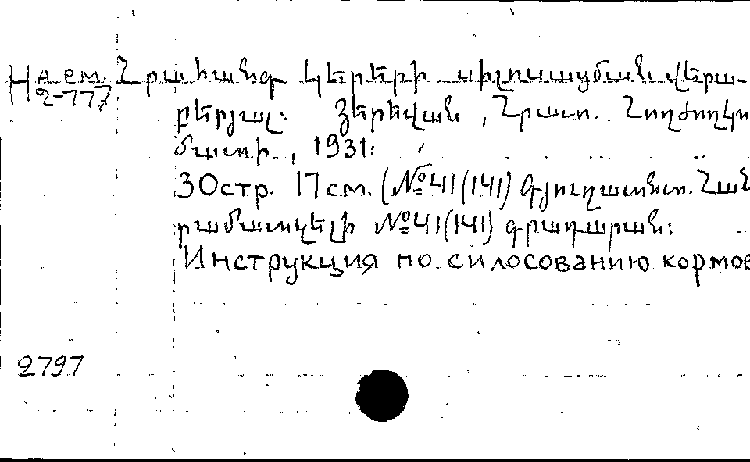 Н а.ем. Հրահանգ կերերի սիլոսացման վերա-
2-777
բերյալ: Յերեվան, Հրատ. Հողժողկո
մատի, 1931:
30стр. 17см. (№41(141) Գյուղատնտ. Հան
րամատչելի №41(141) գրադարան:
Инструкция по силосованию кормов
2797